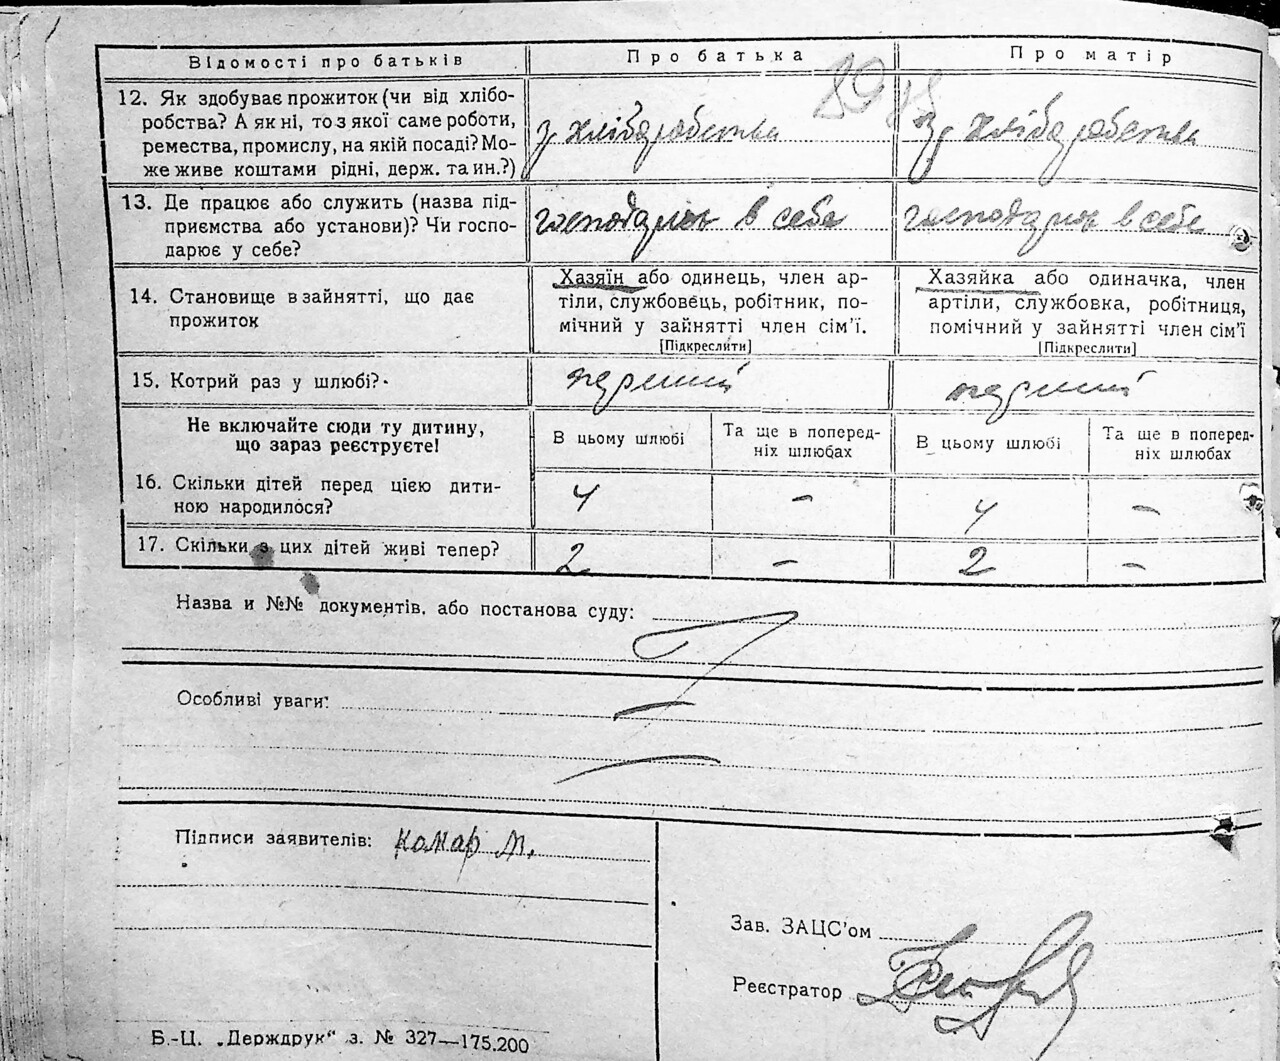 Відомості про батьків
Про батька
Про матір
12. Як здобуває прожиток (чи від хлібо-
робства? А як ні, то з якої саме роботи,
ремества, промислу, на якій посаді? Мо-
же живе коштами рідні, держ. та ин.?)
з хліборобства
з хліборобства
13. Де працює або служить (назва під-
приємства або установи)? Чи госпо-
дарює у себе?
господарює в себе
господарює в себе
14. Становище в зайнятті, що дає
прожиток
Хазяїн або одинець, член ар-
тіли, службовець, робітник, по-
мічний у зайнятті член сім'ї.
[Підкреслити]
Хазяйка або одиначка, член
артіли, службовка, робітниця,
помічний у зайнятті член сім'ї
[Підкреслити]
15. Котрий раз у шлюбі?
перший
перший
Не включайте сюди ту дитину,
що зараз реєструєте!
В цьому шлюбі
Та ще в поперед-
ніх шлюбах
В цьому шлюбі
Та ще в поперед-
ніх шлюбах
16. Скільки дітей перед цією дити-
ною народилося?
4 – 4 –
17. Скільки з цих дітей живі тепер?
2 – 2 –
Назва и №№ документів, або постанова суду:
Особливі уваги:
Підписи заявителів: Комар М.
Зав. ЗАЦС'ом
Реєстратор
Б.-Ц. „Держдрук“ з. № 327—175.200